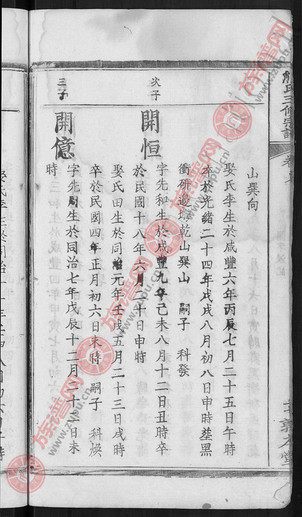 氏三修宗譜
卷
山巽向
娶氏李生於咸豐六年丙辰七月二十五日午時
卒於光緒二十四年戊戌八月初八日申時塟黑
衝研邊 乾山巽山 嗣子 科發
次子
開恒
字先和生於咸豐九年己未八月十二日丑時卒
於民國十八年 月 十日申時
娶氏田生於同治元年壬戌五月二十三日戌時
卒於民國四年正月初六日未時 嗣子 科煥
三子
開億
字先 生於同治七年戊辰十二月二十二日未
時
族譜網
www.zupu.cn